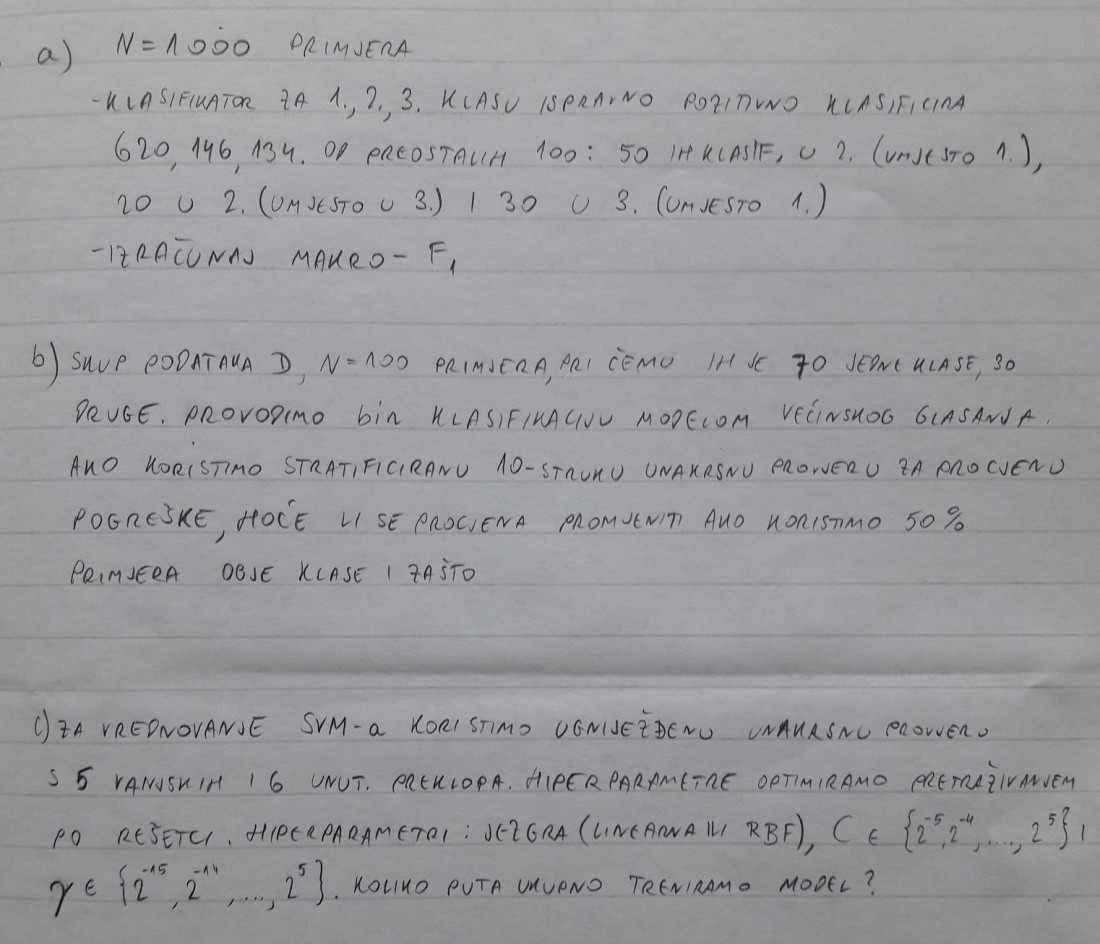 a) N=1000 PRIMJERA
-KLASIFIKATOR ZA 1., 2., 3. KLASU ISPRAVNO POZITIVNO KLASIFICIRA
620, 146, 134. OD PREOSTALIH 100: 50 IH KLASIF. U 2. (UMJESTO 1.),
20 U 2. (UMJESTO U 3.) I 30 U 3. (UMJESTO 1.)
-IZRAČUNAJ MAKRO-F₁
b) SKUP PODATAKA D, N=100 PRIMJERA, PRI ČEMU IH JE 70 JEDNE KLASE, 30
DRUGE. PROVODIMO bin KLASIFIKACIJU MODELOM VEĆINSKOG GLASANJA.
AKO KORISTIMO STRATIFICIRANU 10-STRUKU UNAKRSNU PROVJERU ZA PROCJENU
POGREŠKE, HOĆE LI SE PROCJENA PROMJENITI AKO KORISTIMO 50%
PRIMJERA OBJE KLASE I ZAŠTO
c) ZA VREDNOVANJE SVM-a KORISTIMO UGNIJEŽĐENU UNAKRSNU PROVJERU
S 5 VANJSKIH I 6 UNUT. PREKLOPA. HIPERPARAMETRE OPTIMIRAMO PRETRAŽIVANJEM
PO REŠETCI. HIPERPARAMETRI: JEZGRA (LINEARNA ILI RBF), C ∈ {2⁻⁵, 2⁻⁴, ...., 2⁵} I
γ ∈ {2⁻¹⁵, 2⁻¹⁴, ..., 2⁵}. KOLIKO PUTA UKUPNO TRENIRAMO MODEL?